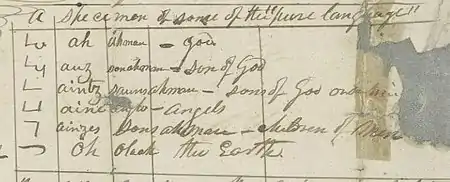 a Specimen of some of the "pure language"
ah ahman - god
auz sonahman - son of God
aintz sauns ahman - sons of God
aine anglo - angels
ainzes sons ahman - children of men
oh olaah the Earth